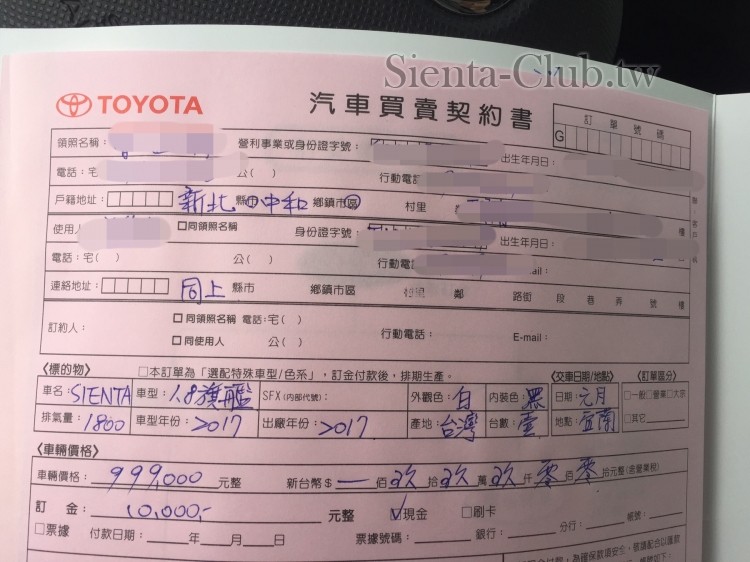 Sienta-Club.tw
TOYOTA 汽車買賣契約書 訂單號碼
G
領照名稱: 營利事業或身份證字號: 出生年月日:
電話:宅( 公( ) 行動電話
戶籍地址: 新北 縣市 中和 鄉鎮市區 村里
使用人 □同領照名稱 身份證字號: 出生年月日:
電話:宅( ) 公( ) 行動電 ail:
連絡地址: 同上 縣市 鄉鎮市區 村里 鄰 路街 段 巷 弄 號 樓
訂約人: □同領照名稱 電話:宅( ) 行動電話: E-mail:
□同使用人 公( )
〈標的物〉 □本訂單為「選配特殊車型/色系」,訂金付款後,排期生產。 〈交車日期/地點〉 〈訂單區分〉
車名:SIENTA 車型:1.8旗艦 SFX(內部代號): 外觀色:白 內裝色:黑 日期:元月 □一般□營業□大宗
排氣量:1800 車型年份:2017 出廠年份:2017 產地:台灣 台數:壹 地點:宜蘭 □其它
〈車輛價格〉
車輛價格:999,000 元整 新台幣$ 一 佰 玖 拾 玖 萬 玖 仟 零 佰 零 拾元整(含營業稅)
訂 金: 10,000,- 元整 ☑現金 □刷卡
□票據 付款日期: 年 月 日 票據號碼: 銀行: 分行: 帳號:
為確保款項安全,敬請配合以匯款